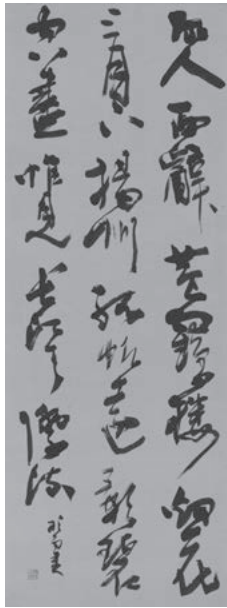 故人西辭黃鶴樓烟花
三月下揚州孤帆遠影碧
空盡惟見長江天際流